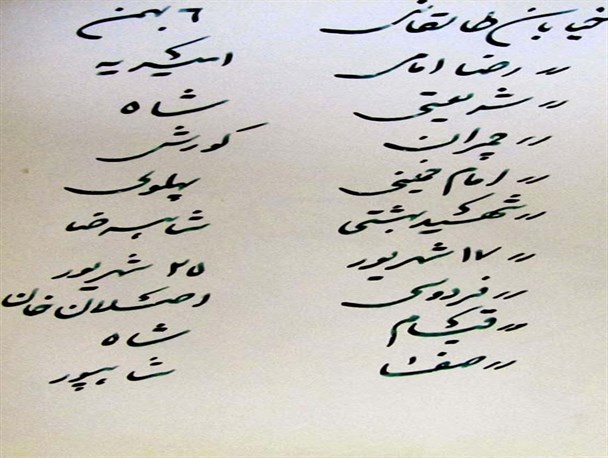 خیابان طالقانی ۶ بهمن
〃 رضا امامی امیریه
〃 شریعتی شاه
〃 چمران کورش
〃 امام خمینی پهلوی
〃 شهید بهشتی شاهرضا
〃 ۱۷ شهریور ۲۵ شهریور
〃 فردوسی ارسلان خان
〃 قیام شاه
〃 صفا شاهپور